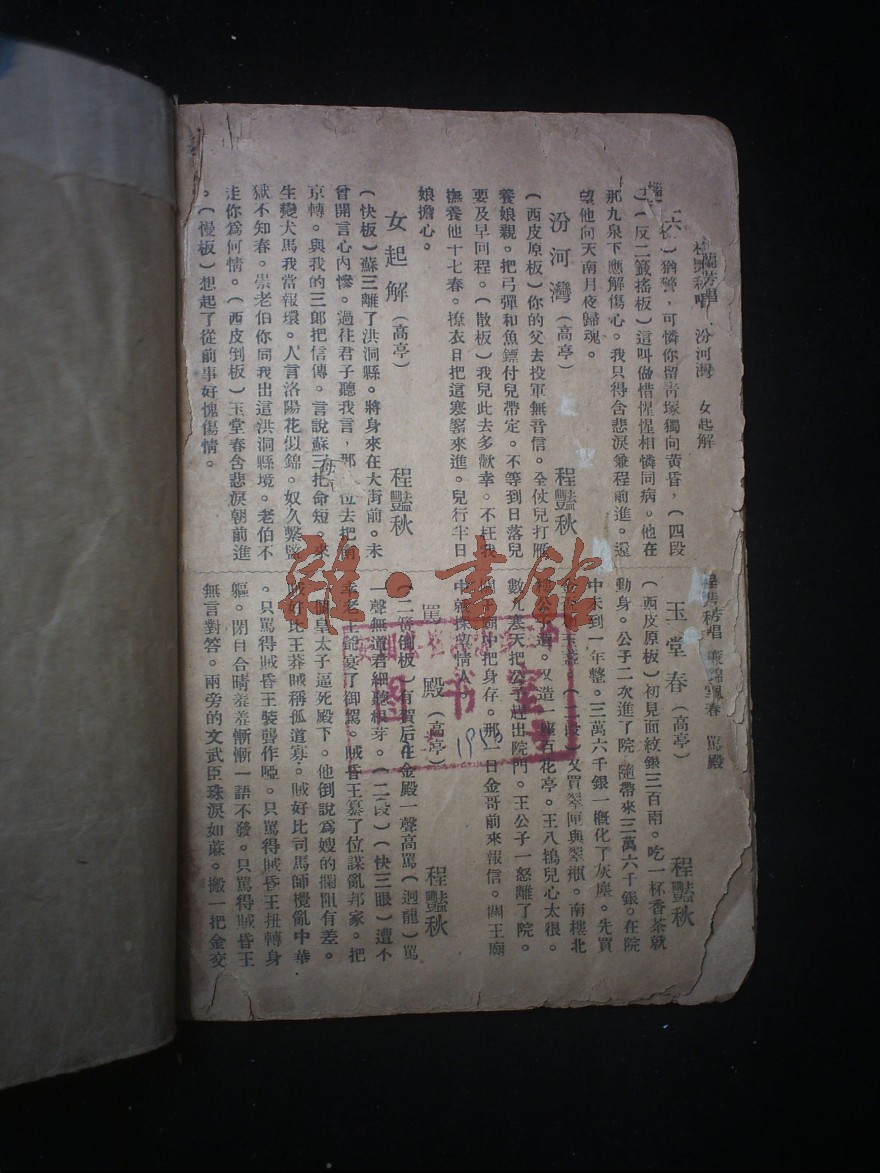 汾河灣 女起解
猶豫,可憐你留青塚獨向黃昏,(四段
)(反二簧搖板)這叫做惜惺惺相憐同病。他在
那九泉下應解傷心。我只得含悲淚兼程前進。還
望他向天南月夜歸魂。
汾河灣(高亭) 程豔秋
(西皮原板)你的父去投軍無音信。全仗兒打雁
養娘親。把弓彈和魚鏢付兒帶定。不等到日落兒
要及早回程。(散板)我兒此去多歉幸。不枉我
撫養他十七春。撩衣日把這寒窰來進。兒行半日
娘擔心。
女起解(高亭) 程豔秋
(快板)蘇三離了洪洞縣。將身來在大街前。未
曾開言心內慘。過往君子聽我言,那位去把南
京轉。與我的三郎把信傳。言說蘇三把命短 來
生變犬馬我當報環。人言洛陽花似錦。奴久繫監
獄不知春。崇老伯你同我出這洪洞縣境。老伯不
走你爲何情。(西皮倒板)玉堂春含悲淚朝前進
。(慢板)想起了從前事好愧傷情。
罵殿
玉堂春(高亭) 程豔秋
(西皮原板)初見面紋銀三百兩。吃一杯香茶就
動身。公子二次進了院 隨帶來三萬六千銀。在院
中未到一年整。三萬六千銀一概化了灰塵。先買
(二段)又買翠匣與翠瓶。南樓北
樓公子造。又造一座百花亭。王八鴇兒心太很。
數九寒天把公子趕出院門。王公子一怒離了院。
廟中把身存。那一日金哥前來報信。關王廟
中就探望情人
罵殿(高亭) 程豔秋
(二簧倒板)有賀后在金殿一聲高罵(迴龍)罵
一聲無道君細聽根芽。(二段)(快三眼)遭不
幸老王爺宴了御駕。賊昏王纂了位謀亂邦家。把
皇太子逼死殿下。他倒說爲嫂的攔阻有差。
賊好比王莽賊稱孤道寡。賊好比司馬師攪亂中華
。只罵得賊昏王裝聾作啞。只罵得賊昏王扭轉身
軀。閉目合睛羞羞慚慚一語不發。只罵得賊昏王
無言對答。兩旁的文武臣珠淚如蔴。搬一把金交
图书室
雜·書館